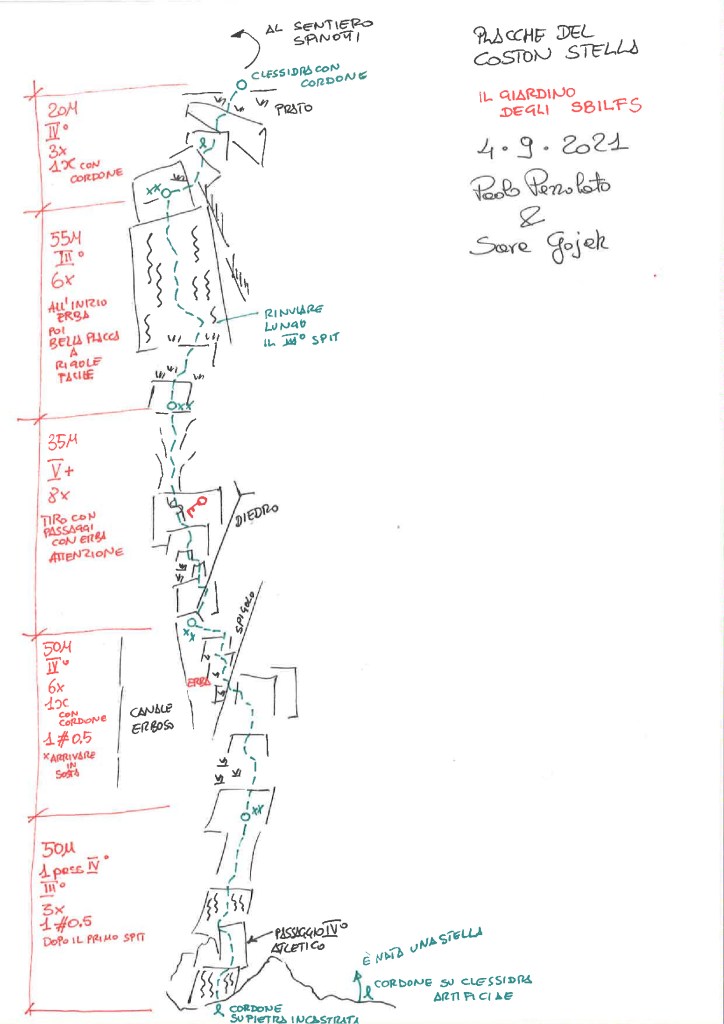 AL SENTIERO
SPINOTTI
PLACCHE DEL
COSTON STELLA
IL GIARDINO
DEGLI SBILFS
4.9.2021
Paolo Pezzolato
&
Sara Gojak
CLESSIDRA CON
CORDONE
PRATO
20M
IV°
3x
1X CON
CORDONE
xx
55M
III°
6x
ALL'INIZIO
ERBA
POI
BELLA PLACCA
A
RIGOLE
FACILE
RINVIARE
LUNGO
IL III° SPIT
xx
35M
V+
8x
TIRO CON
PASSAGGI
CON ERBA
ATTENZIONE
DIEDRO
xx
SPIGOLO
50M
IV°
6x
1X
CON
CORDONE
1 #0.5
x ARRIVARE
IN
SOSTA
ERBA
CANALE
ERBOSO
xx
50M
1 pass IV°
III°
3x
1 #0.5
DOPO IL PRIMO SPIT
PASSAGGIO IV°
ATLETICO
È NATA UNA STELLA
CORDONE SU CLESSIDRA
ARTIFICIAE
CORDONE
SU PIETRA INCASTRATA